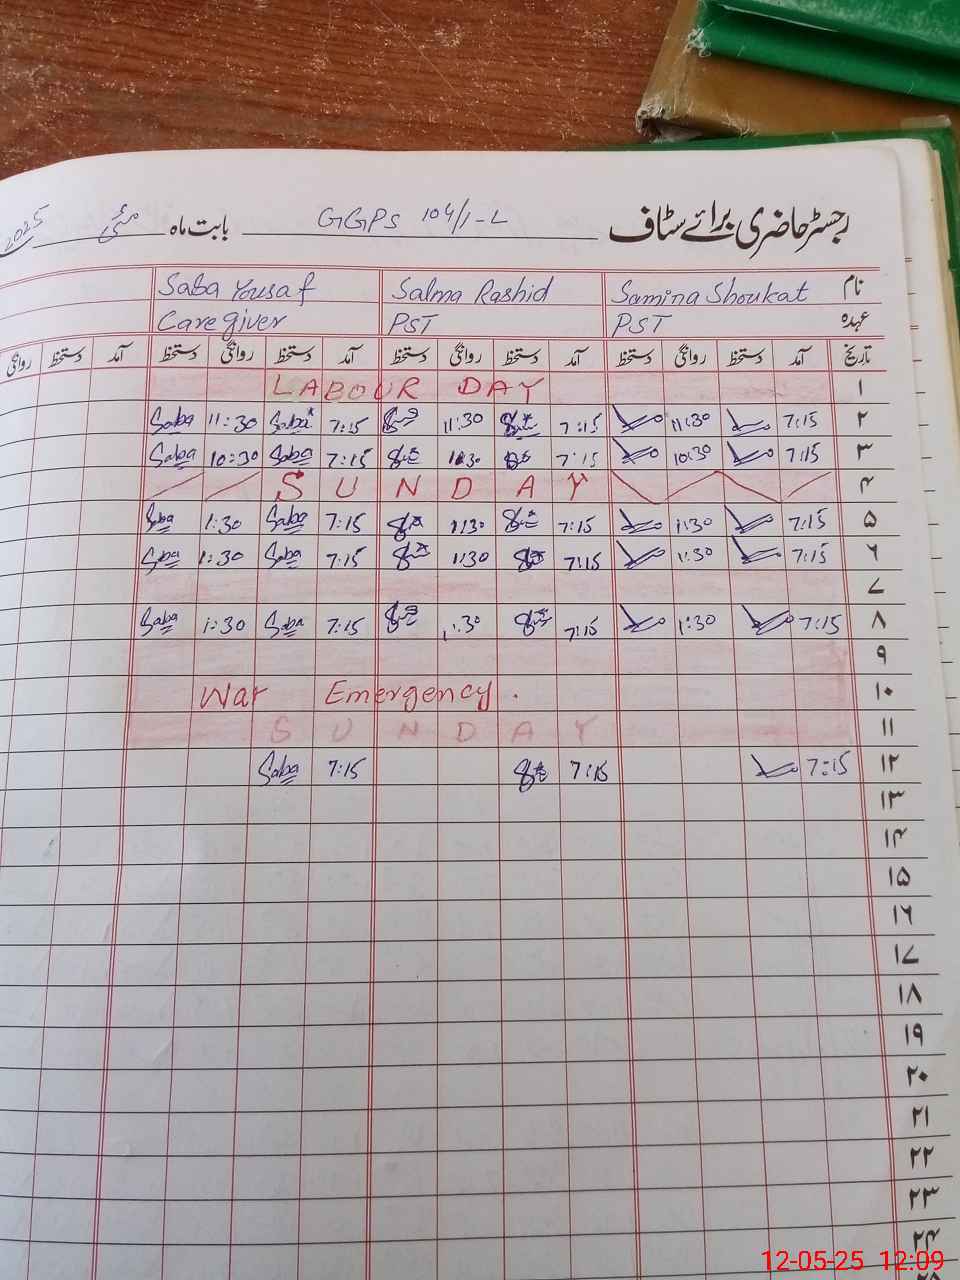 رجسٹر حاضری برائے سٹاف GGPS 104/1-L بابت ماہ مئی 2025
نام Samina Shoukat Salma Rashid Saba Yousaf
عہدہ PST PST Caregiver
تاریخ آمد دستخط روانگی دستخط آمد دستخط روانگی دستخط آمد دستخط روانگی دستخط آمد دستخط روانگی
۱ LABOUR DAY
۲ 7:15 11:30 7:15 11:30 7:15 Saba 11:30 Saba
۳ 7:15 10:30 7:15 7:15 Saba 10:30 Saba
۴ SUNDAY
۵ 7:15 1:30 7:15 1:30 7:15 Saba 1:30 Saba
۶ 7:15 1:30 7:15 1:30 7:15 Saba 1:30 Saba
۷
۸ 7:15 1:30 7:15 1:30 7:15 Saba 1:30 Saba
۹
۱۰ War Emergency.
۱۱ SUNDAY
۱۲ 7:15 7:15 7:15 Saba
۱۳
۱۴
۱۵
۱۶
۱۷
۱۸
۱۹
۲۰
۲۱
۲۲
۲۳
۲۴
12-05-25 12:09